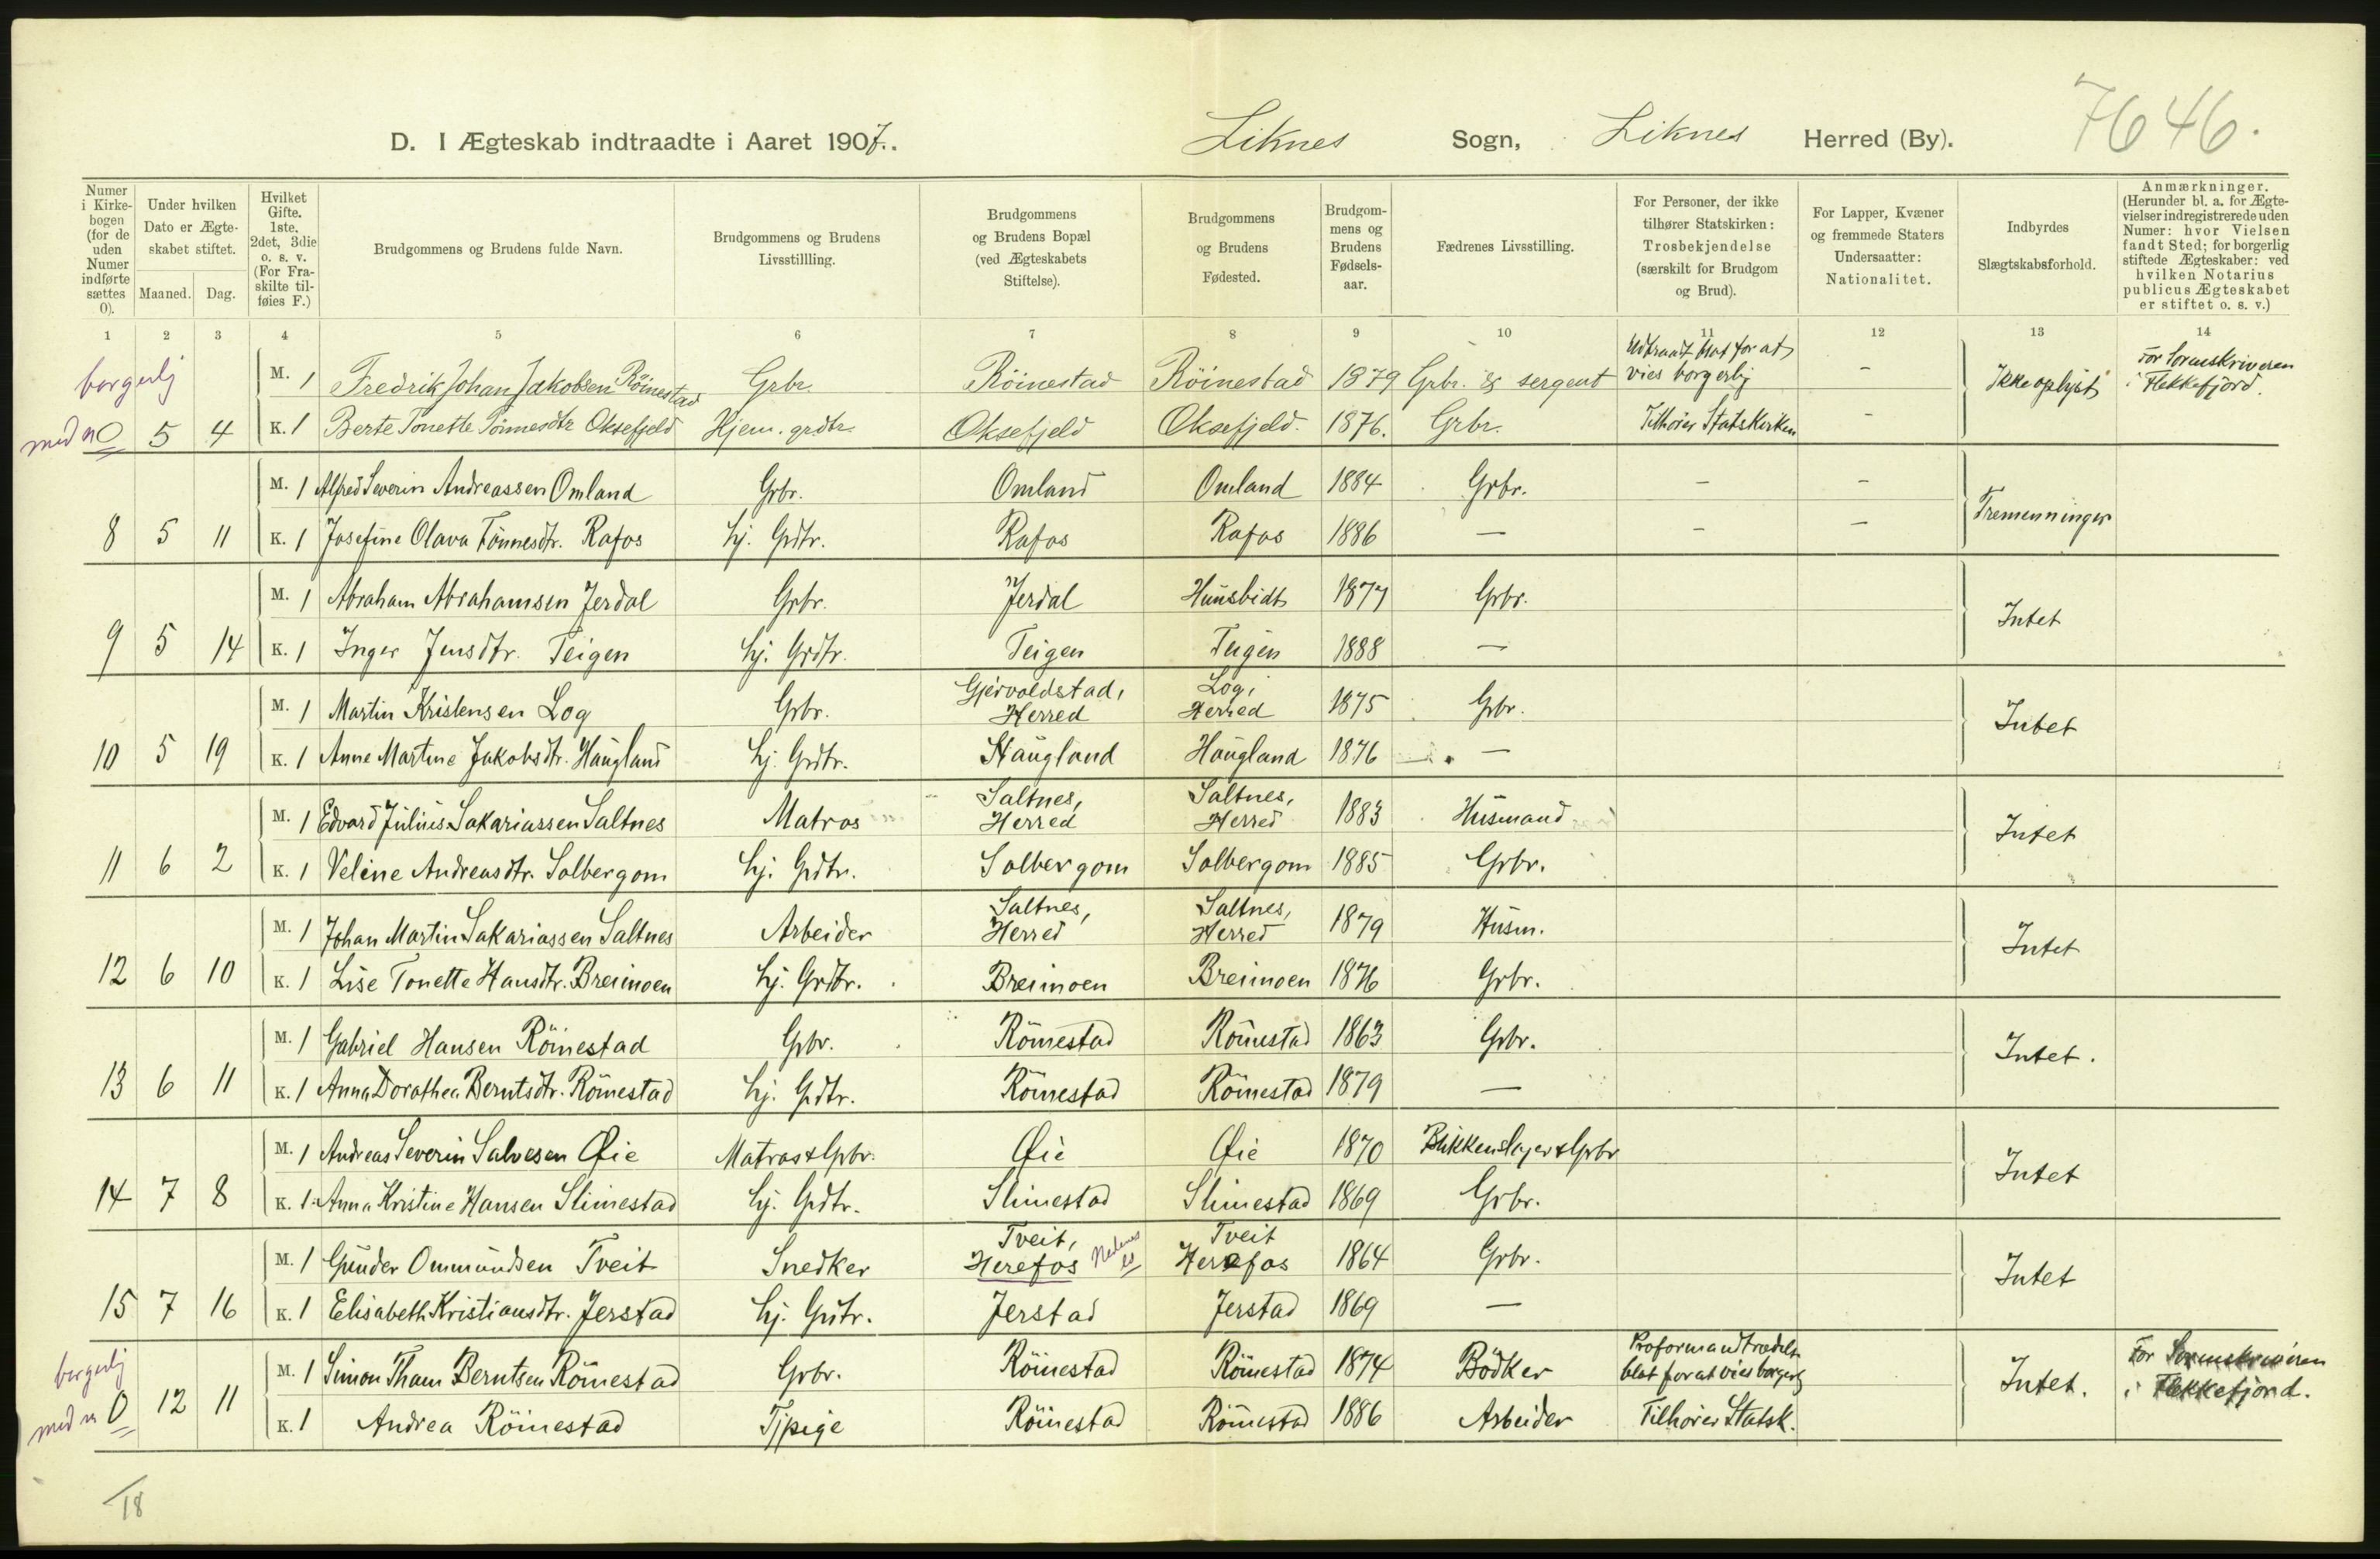 7646.
D. I Ægteskab indtraadte i Aaret 1907. Liknes Sogn, Liknes Herred (By).
Numer i Kirkebogen (for de uden Numer indførte sættes 0).
Under hvilken Dato er Ægteskabet stiftet.
Maaned. Dag.
Hvilket Gifte. 1ste. 2det, 3die o. s. v. (For Fraskilte tilføies F.)
Brudgommens og Brudens fulde Navn.
Brudgommens og Brudens Livsstillling.
Brudgommens og Brudens Bopæl (ved Ægteskabets Stiftelse).
Brudgommens og Brudens Fødested.
Brudgommens og Brudens Fødselsaar.
Fædrenes Livsstilling.
For Personer, der ikke tilhører Statskirken: Trosbekjendelse (særskilt for Brudgom og Brud).
For Lapper, Kvæner og fremmede Staters Undersaatter: Nationalitet.
Indbyrdes Slægtskabsforhold.
Anmærkninger. (Herunder bl. a. for Ægtevielser indregistrerede uden Numer: hvor Vielsen fandt Sted; for borgerlig stiftede Ægteskaber: ved hvilken Notarius publicus Ægteskabet er stiftet o. s. v.)
1 2 3 4 5 6 7 8 9 10 11 12 13 14
borgerlj M. 1 Fredrik Johan Jakobsen Röinestad Grbr. Röinestad Röinestad 1879 Grbr. & sergent Udtraadt blot for at vies borgerlj - Ikke oplyst For Sorenskriveren i Flekkefjord.
med n 0 5 4 K. 1 Berte Tonette Tönnesdtr Oksefjeld Hjem. grdtr. Oksefjeld Oksefjeld. 1876. Grbr. Tilhører Statskirken -
M. 1 Alfred Severin Andreassen Omland Grbr. Omland Omland 1884 Grbr. - - Tremenninger
8 5 11 K. 1 Josefine Olava Tönnesdtr. Rafos hj. Grdtr. Rafos Rafos 1886 — - -
M. 1 Abraham Abrahamsen Jerdal Grbr. Jerdal Hunsbidt 1877 Grbr. Intet
9 5 14 K. 1 Inger Jensdtr. Teigen hj. Grdtr. Teigen Teigen 1888 —
M. 1 Martin Kristensen Log Grbr. Gjervoldstad, Herred Log, Herred 1875 Grbr. Intet
10 5 19 K. 1 Anne Martine Jakobsdtr. Haugland hj. Grdtr. Haugland Haugland 1876 —
M. 1 Edvard Julius Sakariassen Saltnes Matros Saltnes, Herred Saltnes, Herred 1883 Husmand Intet
11 6 2 K. 1 Veline Andreasdtr. Solbergom hj. Grdtr. Solbergom Solbergom 1885 Grbr.
M. 1 Johan Martin Sakariassen Saltnes Arbeider Saltnes, Herred Saltnes, Herred 1879 Husm. Intet
12 6 10 K. 1 Lise Tonette Hansdtr. Breimoen hj. Grdtr. Breimoen Breimoen 1876 Grbr.
M. 1 Gabriel Hansen Röinestad Grbr. Röinestad Röinestad 1863 Grbr. Intet.
13 6 11 K. 1 Anna Dorothea Berntsdtr. Röinestad hj. Grdtr. Röinestad Röinestad 1879 —
M. 1 Andreas Severin Salvesen Øie Matros & Grbr. Øie Øie 1870 Blikkenslager & Grbr Intet
14 7 8 K. 1 Anna Kristine Hansen Slimestad hj. Grdtr. Slimestad Slimestad 1869 Grbr.
M. 1 Gunder Ommundsen Tveit Snedker Tveit, Herefos Nedenes Tveit Herefos 1864 Grbr. Intet
15 7 16 K. 1 Elisabeth Kristiansdtr. Jerstad hj. Grdtr. Jerstad Jerstad 1869 —
borgerlj M. 1 Simon Tham Berntsen Röinestad Grbr. Röinestad Röinestad 1874 Bödker blot for at vies borgerlj Intet. For Sorenskriveren i Flekkefjord.
med n 0 12 11 K. 1 Andrea Röinestad Tjpige Röinestad Röinestad 1886 Arbeider Tilhører Statsk.
18